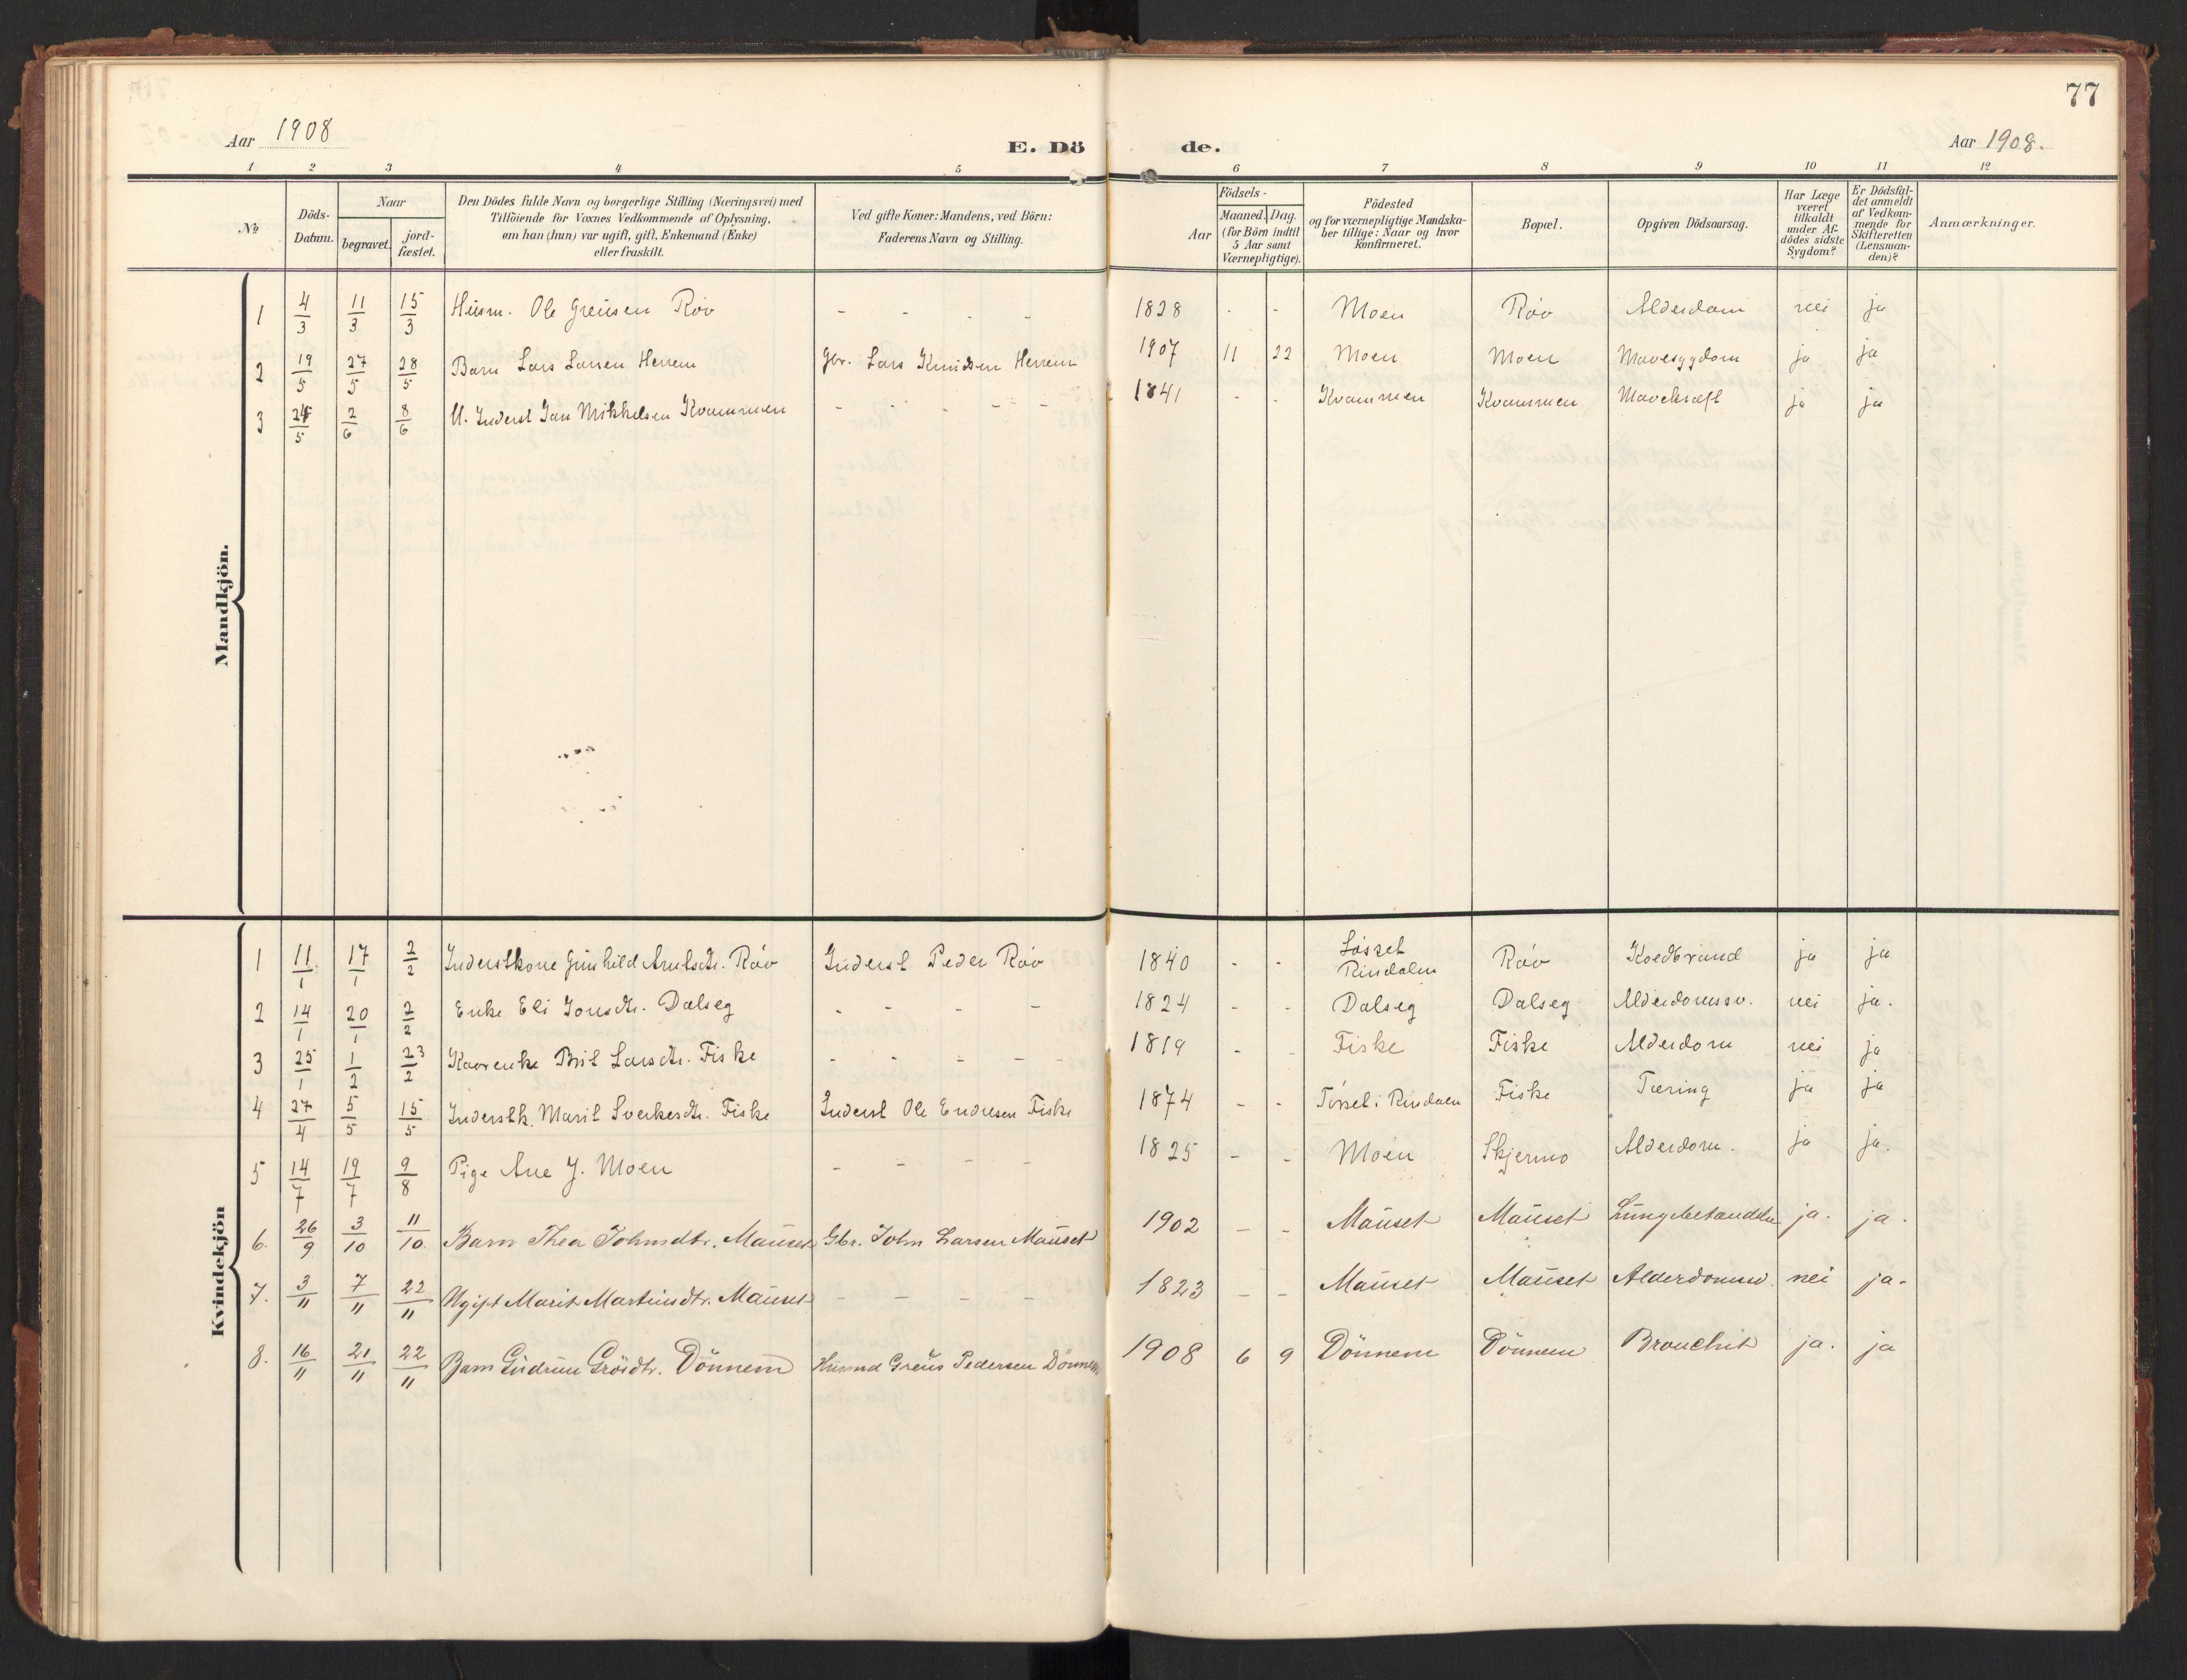 77
Aar 1908
E. Dö de.
Aar 1908.
1 2 3 4 5 6 7 8 9 10 11 12
№
Döds-
Datum.
Naar
begravet.
jord-
fæstet.
Den Dödes fulde Navn og borgerlige Stilling (Næringsvei) med
Tilföiende for Voxnes Vedkommende af Oplysning,
om han (hun) var ugift, gift, Enkemand (Enke)
eller fraskilt.
Ved gifte Koner: Mandens, ved Börn:
Faderens Navn og Stilling.
Födsels-
Aar
Maaned. Dag.
(for Börn indtil
5 Aar samt
Værnepligtige).
Födested
og for værnepligtige Mandska-
ber tillige: Naar og hvor
Konfirmeret.
Bopæl.
Opgiven Dödsaarsag.
Har Læge
været
tilkaldt
under Af-
dödes sidste
Sygdom?
Er Dödsfal-
det anmeldt
af Vedkom-
mende for
Skifteretten
(Lensman-
den)?
Anmærkninger.
Mandkjön.
1 4/3 11/3 15/3 Husm. Ole Greusen Röv - - - - 1828 - - Moen Röv Alderdom nei ja
2 19/5 27/5 28/5 Barn Lars Larsen Herrem Gbr. Lars Knudsen Herrem 1907 11 22 Moen Moen Mavesygdom ja ja
3 24/5 2/6 8/6 U. Inderst Jan Mikkelsen Kvammen - - - - - 1841 - - Kvammen Kvammen Mavekræft ja ja
Kvindekjön
1 11/1 17/1 2/2 Inderstkone Gunhild Arntsdtr. Röv Inderst Peder Röv 1840 - - Løsset Rindalen Röv Koldbrand ja ja
2 14/1 20/1 2/2 Enke Eli Jonsdtr. Dalseg - - - - 1824 - - Dalseg Dalseg Alderdomssv. nei ja.
3 25/1 1/2 23/2 Kaarenke Brit Larsdtr. Fiske - - - - - 1819 - - Fiske Fiske Alderdom nei ja
4 27/4 5/5 15/5 Inderstk. Marit Sverkesdtr. Fiske Inderst Ole Endresen Fiske 1874 - - Tørset i Rindalen Fiske Tæring ja ja
5 14/7 19/7 9/8 Pige Ane J. Moen - - - - 1825 - - Moen Skjermo Alderdom. ja ja.
6. 26/9 3/10 11/10. Barn Thea Johnsdtr. Mauset Gbr. John Larsen Mauset 1902 - - Mauset Mauset Lungebetændelse ja. ja.
7. 3/11 7/11 22/11 Ugift Marit Martinsdtr. Mauset - - - - 1823 - - Mauset Mauset Alderdomssv. nei ja.
8. 16/11 21/11 22/11 Barn Gudrun Gröisdtr. Dönnem Husmd Greus Pedersen Dönnem 1908 6 9 Dönnem Dönnem Bronchit ja. ja